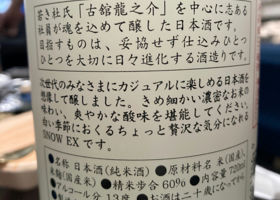 若き杜氏「古舘龍之介」を中心に志ある
社員が魂を込めて醸した日本酒です。
目指すものは、妥協せず仕込みひとつ
ひとつを大切に日々進化する酒造りです。
次世代のみなさまにカジュアルに楽しめる日本酒を
想像して醸しました。きめ細かい濃密なお米の
味わい、爽やかな酸味を堪能してください。
白い季節におくるちょっと贅沢な気分になれる
SNOW EX です。
●名称 日本酒(純米酒) ●原材料名 米(国産)、
米麹(国産米) ●精米歩合 60% ●内容量 720ml
アルコール分 13度 ●お酒は二十歳になってから